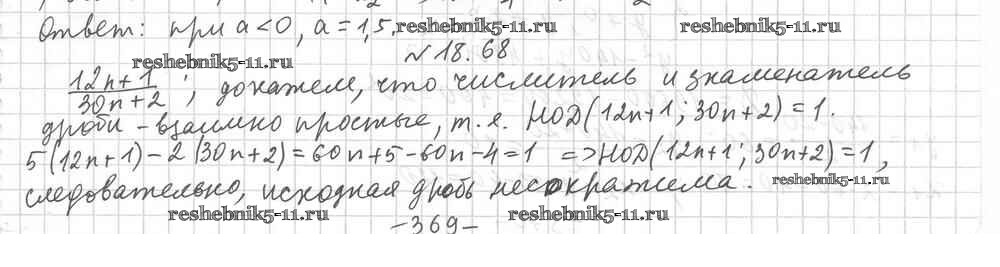 Ответ: при a<0, a=1,5. reshebnik5-11.ru reshebnik5-11.ru
reshebnik5-11.ru №18.68
12n+1/30n+2; докажем, что числитель и знаменатель
дроби - взаимно простые, т.е. НОД(12n+1; 30n+2)=1.
5(12n+1)-2(30n+2)=60n+5-60n-4=1 =>НОД(12n+1; 30n+2)=1,
следовательно, исходная дробь несократима. reshebnik5-11.ru
reshebnik5-11.ru reshebnik5-11.ru
-369-